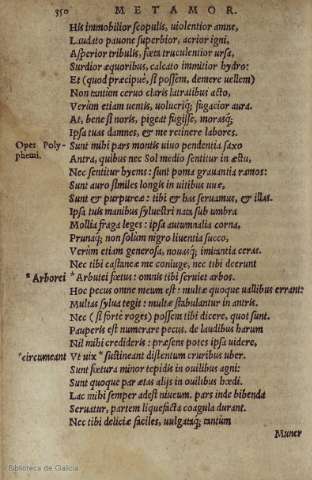 350 METAMOR.
His immobilior scopulis, uiolentior amne,
Laudato pauone superbior, acrior igni,
Asperior tribulis, fœta truculentior ursa,
Surdior æquoribus, calcato immitior hydro:
Et (quod præcipuè, si possem, demere uellem)
Non tantùm ceruo claris latratibus acto,
Verùm etiam uentis, uolucriq; fugacior aura.
At, bene si noris, pigeat fugisse, morasq;
Ipsa tuas damnes, & me retinere labores.
Opes Poly-phemi. Sunt mihi pars montis uiuo pendentia saxo
Antra, quibus nec Sol medio sentitur in æstu,
Nec sentitur hyems: sunt poma grauantia ramos:
Sunt auro similes longis in uitibus uuæ,
Sunt & purpureæ: tibi & has seruamus, & illas.
Ipsa tuis manibus syluestri nata sub umbra
Mollia fraga leges: ipsa autumnalia corna,
Prunaq; non solùm nigro liuentia succo,
Verùm etiam generosa, nouasq; imitantia ceras.
Nec tibi castaneæ me coniuge, nec tibi deerunt
*Arborei *Arbutei fœtus: omnis tibi seruiet arbos.
Hoc pecus omne meum est: multæ quoque uallibus errant:
Multas sylua tegit: multæ stabulantur in antris.
Nec (si fortè roges) possem tibi dicere, quot sunt.
Pauperis est numerare pecus. de laudibus harum
Nil mihi credideris: præsens potes ipsa uidere,
*circumeant Vt uix *sustineant distentum cruribus uber.
Sunt fœtura minor tepidis in ouilibus agni:
Sunt quoque par ætas alijs in ouilibus hœdi.
Lac mihi semper adest niueum. pars inde bibenda
Seruatur, partem liquefacta coagula durant.
Nec tibi deliciæ faciles, uulgataq; tantùm
Muner
Biblioteca de Galicia